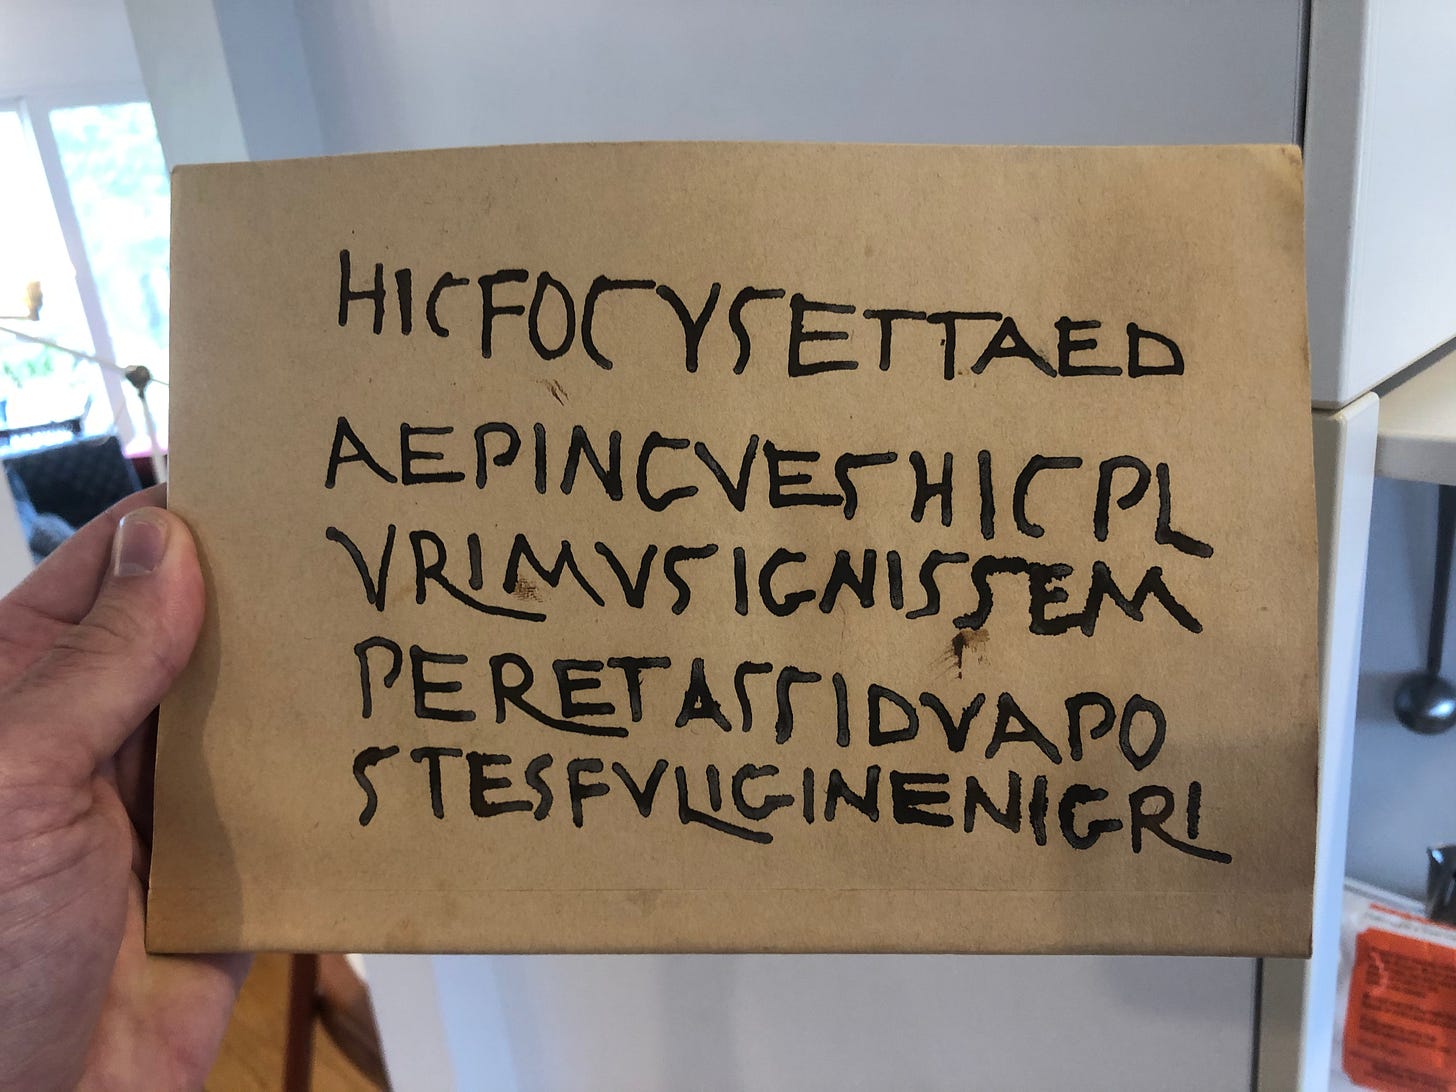 HICFOCVSETTAED
AEPINGVESHICPL
VRIMVSIGNISSEM
PERETASSIDVAPO
STESFVLIGINENIGRI